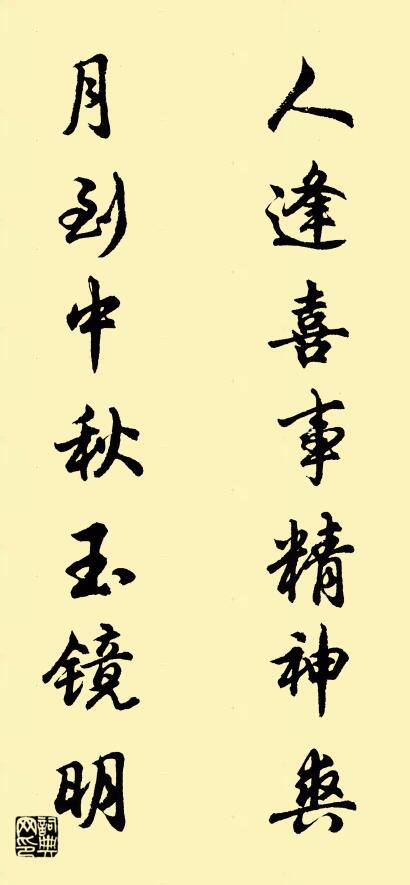 人逢喜事精神爽
月到中秋玉镜明
詞典
网印